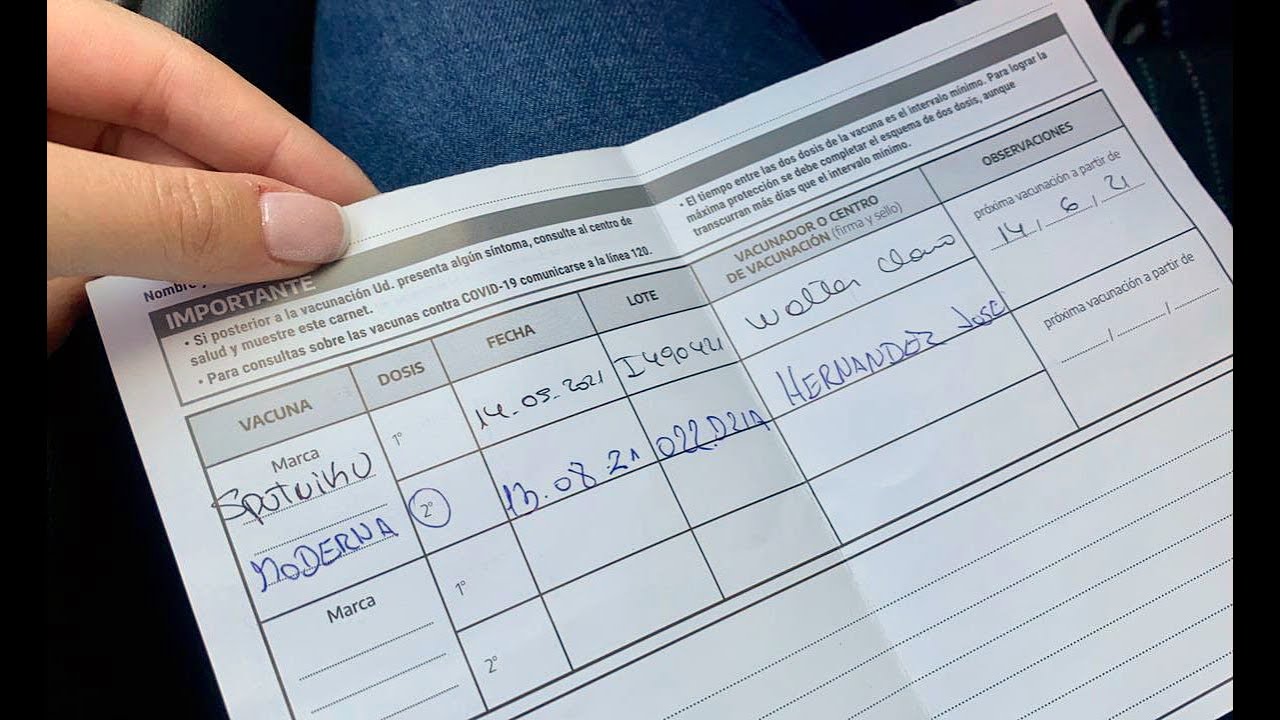 Nombre y
IMPORTANTE
• Si posterior a la vacunación Ud. presenta algún síntoma, consulte al centro de
salud y muestre este carnet.
• Para consultas sobre las vacunas contra COVID-19 comunicarse a la línea 120.
• El tiempo entre las dos dosis de la vacuna es el intervalo mínimo. Para lograr la
máxima protección se debe completar el esquema de dos dosis, aunque
transcurran más días que el intervalo mínimo.
VACUNA
DOSIS
FECHA
LOTE
VACUNADOR O CENTRO
DE VACUNACIÓN (firma y sello)
OBSERVACIONES
Marca
Sputnik V
1°
14.05.2021
I490421
próxima vacunación a partir de
14 / 6 / 21
MODERNA
2°
13.08.21
022D21A
HERNANDEZ JOSE
próxima vacunación a partir de
Marca
1°
2°